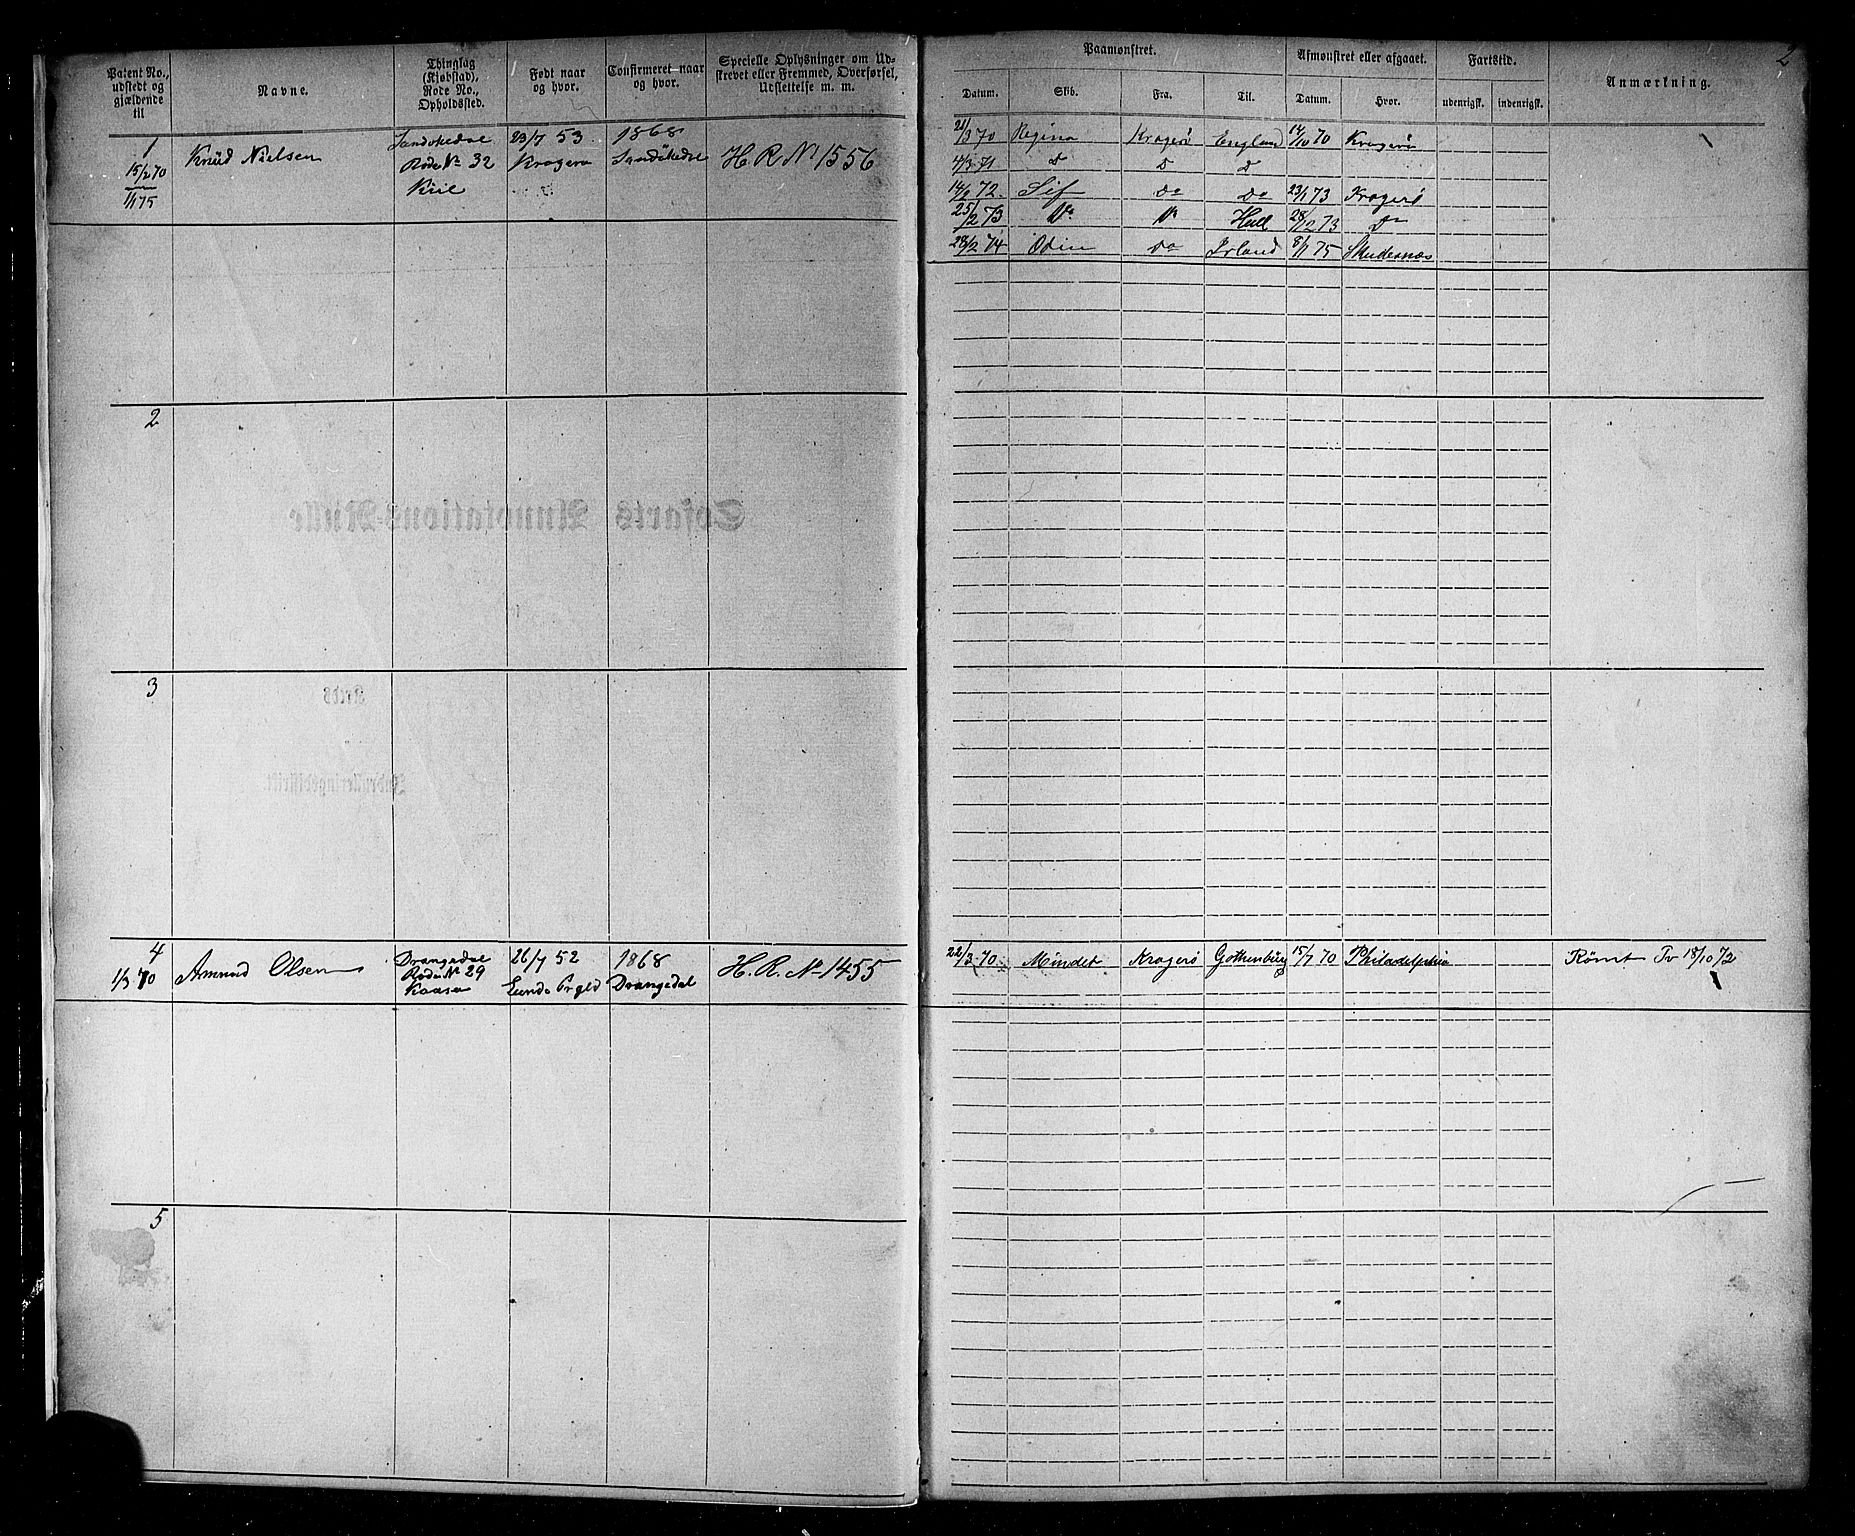 Patent No., udstedt og gjældende til
Navne.
Thinglag (Kjøbstad), Rode No., Opholdssted.
Født naar og hvor.
Confirmeret naar og hvor.
Specielle Oplysninger om Udskrevet eller Fremmed, Overførsel, Udslettelse m. m.
Paamønstret.
Afmønstret eller afgaaet.
Fartstid.
Anmærkning.
2
Datum.
Skib.
Fra.
Til.
Datum.
Hvor.
udenrigsk.
indenrigsk.
1
15/2 70
1/1 75
Knüd Nielsen
Sandøkedal
Rode No 32
Kiil
23/7 53
Kragerø
1868
Sandøkedal
H. R. No 1556
21/3 70 Regina Kragerø England 14/10 70 Kragerø
4/3 71 D D D
14/2 72 Sif Do Do 23/1 73 Kragerø
25/2 73 Do Do Hull 28/12 73 Do
28/2 74 Odin Do Irland 8/1 75 Skudesnæs
2
Søfarts Annotations-Rulle
3
Kreds
Indrulleringsdistrikt.
4
1/3 70
Amund Olsen
Drangedal
Rode No 29
Kaasa
26/7 52
Lunde Prgld
1868
Drangedal
H. R. No 1455
22/3 70 Mindet Kragerø Gothenburg 15/7 70 Philadelphia
Rømt Tv 18/10 72
5